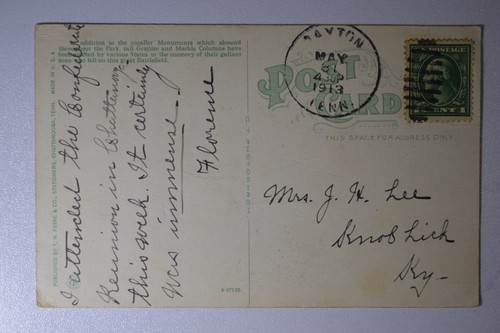 In addition to the smaller Monuments which abound
throughout the Park, tall Granite and Marble Columns have
been erected by various States to the memory of their gallant
sons who fell in this great Battlefield.
I attended the Confederate
Reunion in Chattanooga
this week. It certainly
was immense.
Florence
DAYTON
MAY
31
1913
TENN.
POST
CARD
THIS SPACE FOR ADDRESS ONLY.
U.S. POSTAGE
1 CENT 1
Mrs. J. H. Lee
Knob Lick
Ky-
MADE IN U.S.A.
PUBLISHED BY T. H. PAYNE & CO., STATIONERS, CHATTANOOGA, TENN.